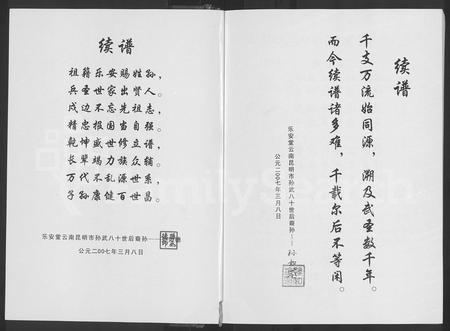 续谱
祖籍乐安赐姓孙，
兵圣世家出贤人。
戍边不忘先祖志，
精忠报国当自强。
乾坤盛世修立谱，
长辈竭力族众辅。
万代不乱源世系，
子孙康健百世昌。
乐安堂云南昆明市孙武八十世后裔孙——
公元二00七年三月八日
续谱
千支万流始同源，溯及武圣数千年。
而今续谱诸多难，千载尔后不等闲。
乐安堂云南昆明市孙武八十世后裔孙——孙
公元二00七年三月八日